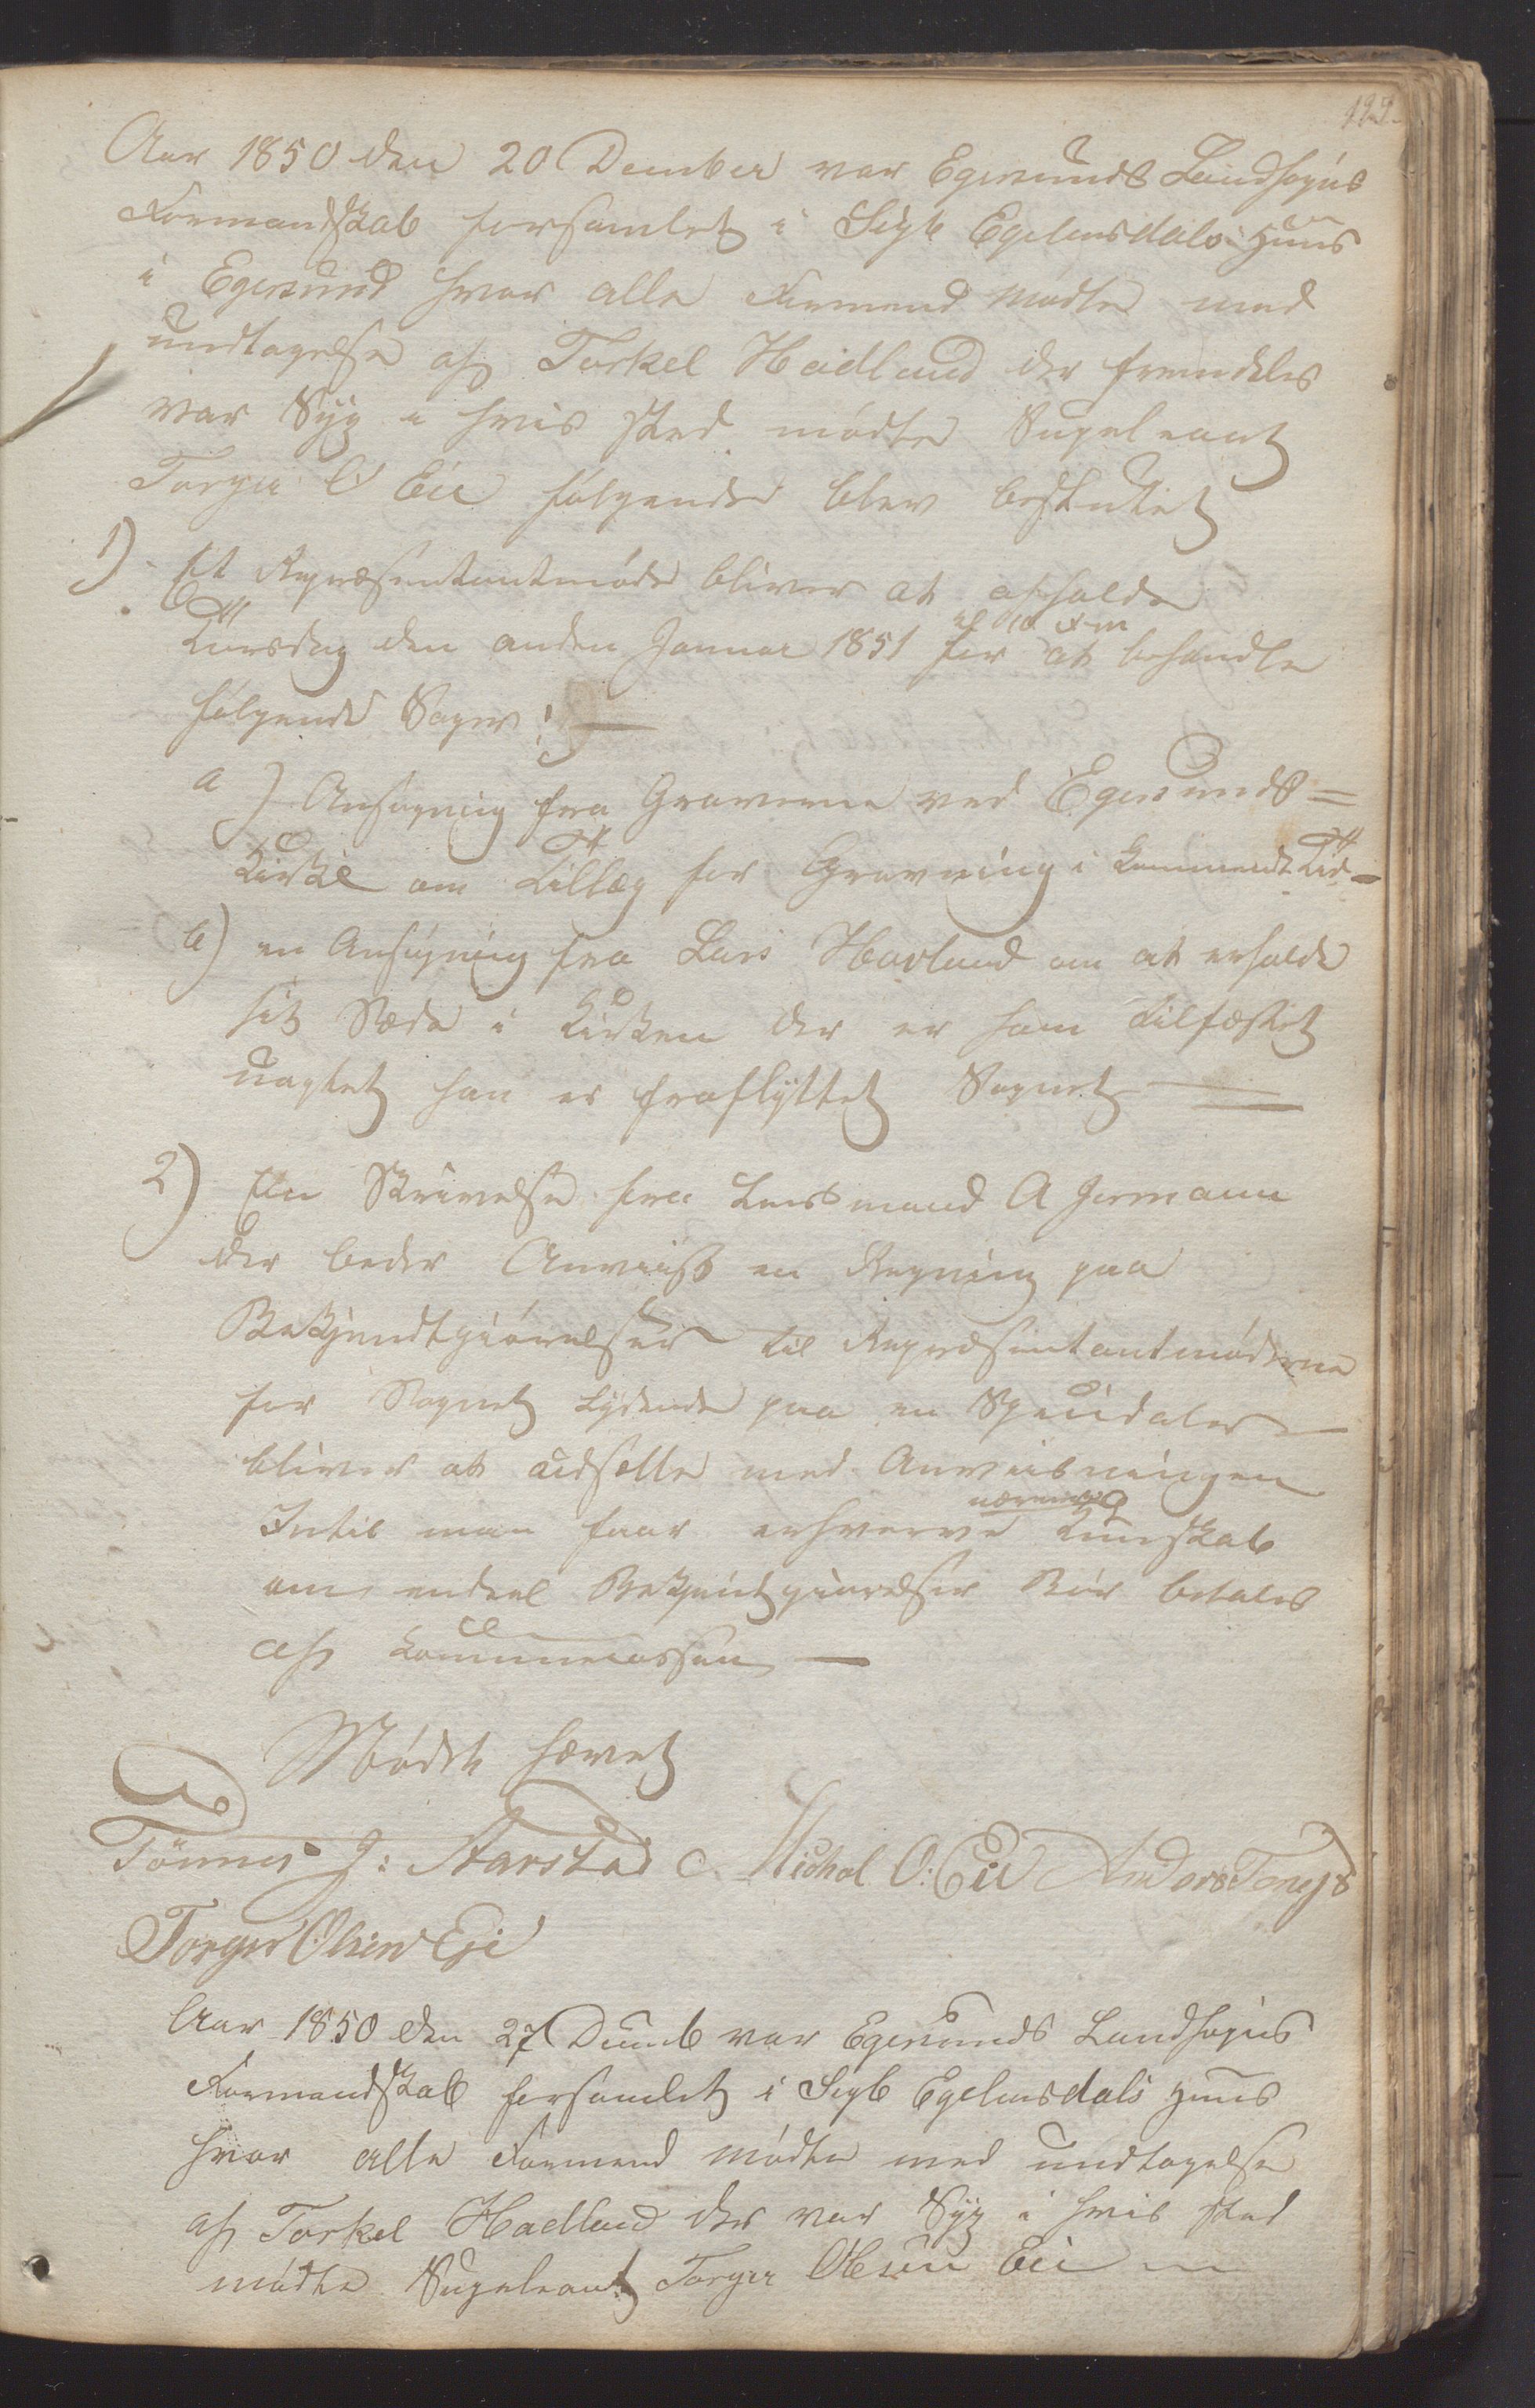 129.
Aar 1850 den 20 Dember var Egersunds Landsogns
Formandskab forsamlet i Sigb Egelandsdals Huus
i Egersund hvor alle Formænd mødte med
undtagelse af Torkel Hadland der fremdeles
var Syg i hvis sted mødte Supeleant
Torger O Eie følgende blev besluttet
1) Et Repræsentantmøde bliver at afholde
Torsdag den anden Januar 1851 kl 10 Fm for at behandle
følgende Sager:
a) Ansøgning fra Graverne ved Egersunds=
Kirke om Tillæg for Gravning i kommende Tid
b) en Ansøgning fra Lars Havland om at erholde
sit Sæde i Kirken der er ham tilfæstet
uagtet han er fraflyttet Sognet
2) En Skrivelse fra Lensmand A Jermann
der beder Anviist en Regning paa
Bekjendtgiørelser til Repræsentantmøderne
for Sognet Lydende paa en Speciedaler
bliver at udsætte med Anviisningen
Indtil man faar erhverve nærmere Kundskab
om endeel Bekjentgiørelser bør betales
af Kommunecassen
Mødet hævet
Tønnes J: Aarstad Michal O: Eie Anders Tengs
Torger Olsen Eje
Aar 1850 den 27 Decemb var Egersunds Landsogns
Formandskab forsamlet i Sigb Egelandsdals Huus
hvor alle Formænd mødte med undtagelse
af Torkel Hadland der var Syg i hvis sted
mødte Supeleant Torger Olsen Eie